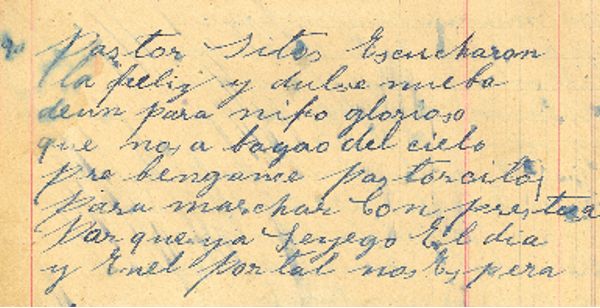 Pastor Sitos Escucharon
la feliz y dulse nueba
deun para niño glorioso
que nos a bayao del cielo
pre bengance pastorcitos
para marchar Con prestesa
Porque ya Seyego El dia
y Enel portal nos Espera